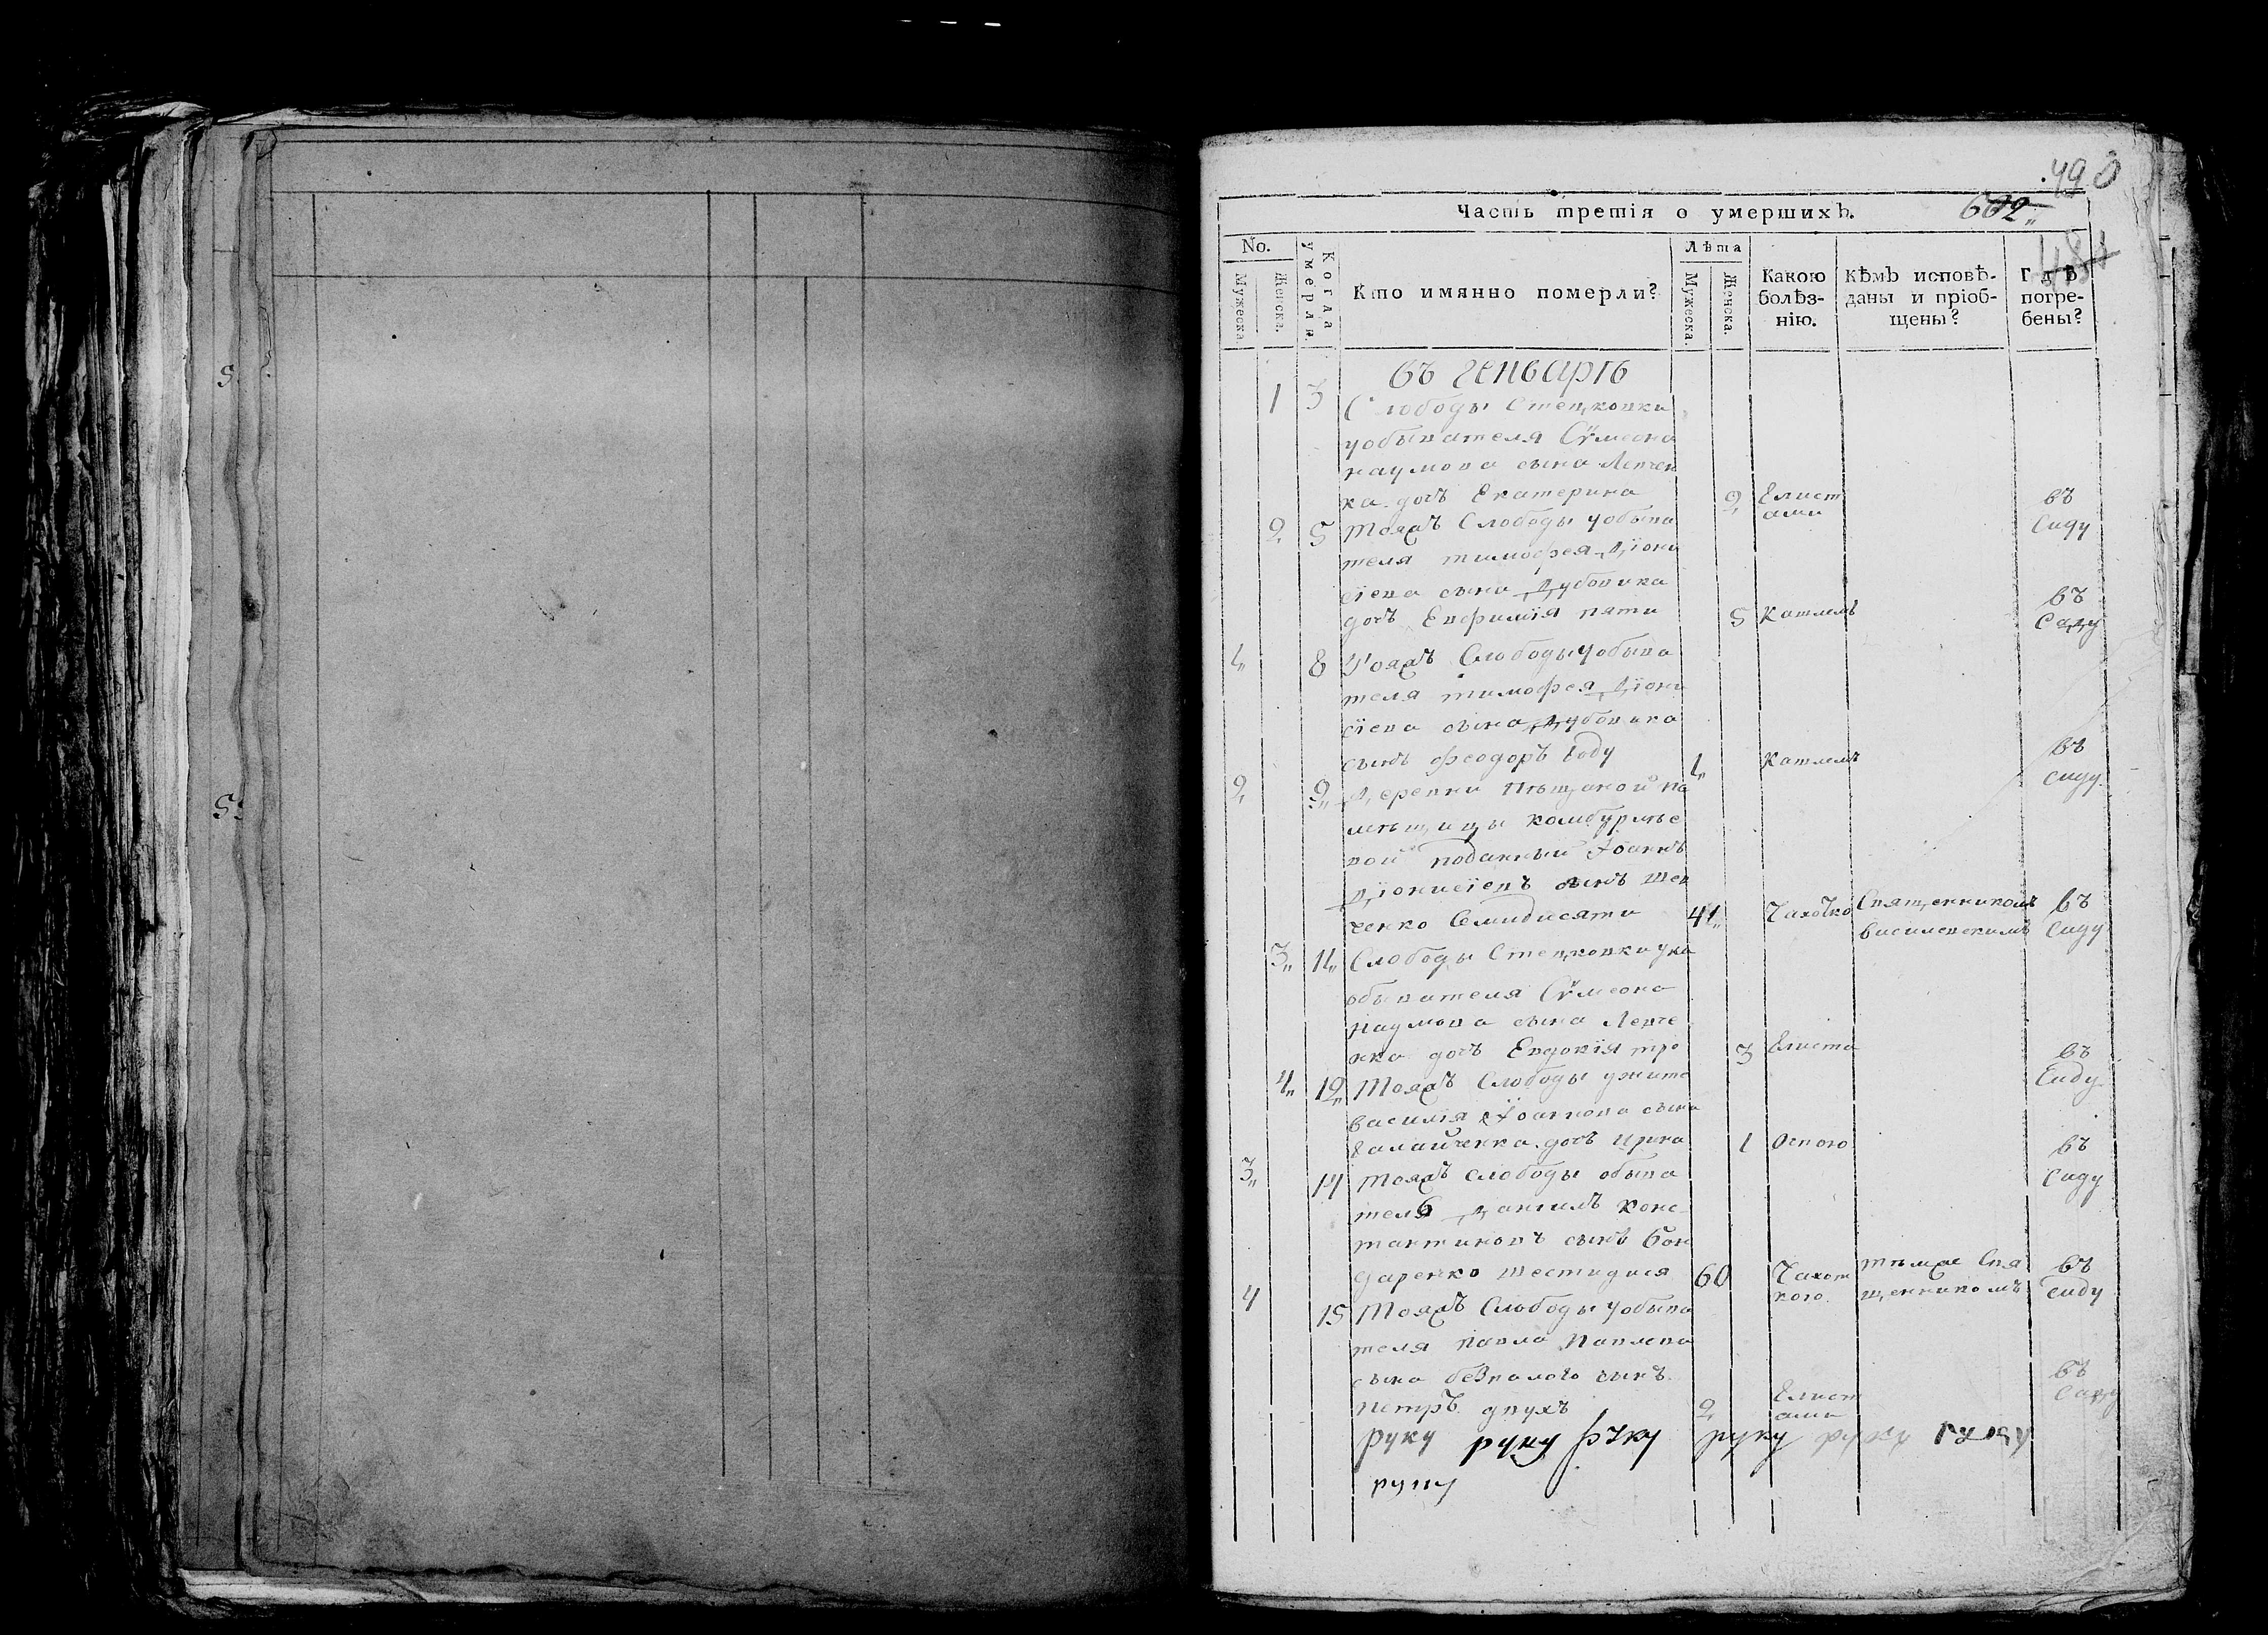 490
602
481
Часть третія о умершихъ.
No. Мужеска. Женска.
Когда умерли.
Кто имянно померли?
Лѣта Мужеска. Женска.
Какою болѣз-нію.
Кѣмъ исповѣ-даны и пріоб-щены?
Гдѣ погре-бены?
въ генварѣ
1 3 Слободы Стецковки
уобывателя Сѵмеона
наумова сына Левчен
ка дочъ Екатерина 2 Глист въ
ами Саду
2 5 Тояжъ Слободы уобыва
теля тимофея Діони
сіева сына Дубовика въ
дочъ Евфимія пяти 5 Кашлемъ Саду
1 8 Тояжъ Слободы уобыва
теля тимофея Діони
сіева сына Дубовика
сынъ феодоръ году 1 Кашлемъ въ
2 9 Деревни Пѣщаной по саду
мѣщицы комбурлѣе
вой поданный Іоаннъ
Діонисіевъ сынъ Шев
ченко 41 Чахотко Священникомъ въ
василевскимъ Саду
3 11 Слободы Стецковки ука
обывателя Сѵмеона
Наумова сына Левче
нка дочъ Евдокія тро 3 Глиста въ
4 12 Тояжъ Слободы ужите Саду
василія Іоаннова сына
галайченка дочъ Ирина 1 Оспою въ
3 14 Тояжъ слободы обыва Саду
тель Даниилъ конс
тантиновъ сынъ бон
даренко шестидися 60 Чахот тѣмже Свя въ
4 кою щенникомъ саду
15 Тояжъ Слободы уобыва
теля павла Павлова
сына безпалого сынъ въ
петръ двухъ 2 Глист Саду
ами
руку руку руку руку руку
руку